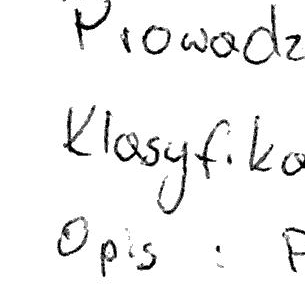 Prowadz
Klasyfika
Opis : P